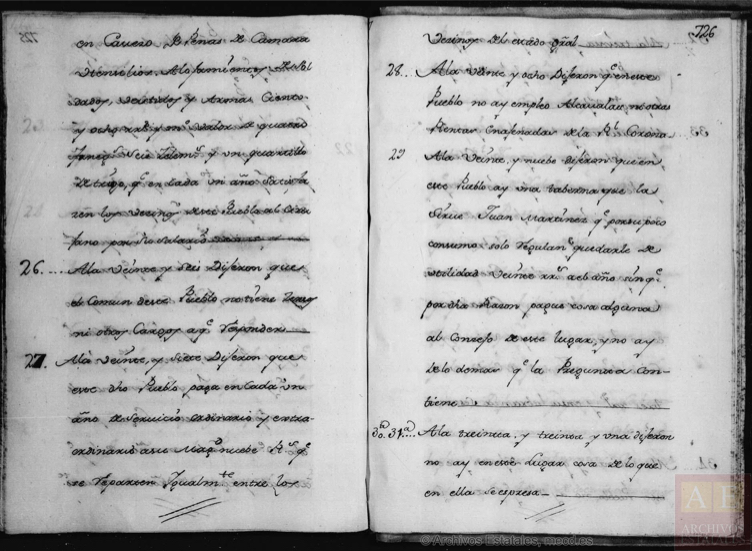 en Cavezo, D Penas de Camara
Utensilios Alojamientos de Sol
dados, Vestidos y Armas Ciento
y ocho rrs y mrs valor de quatro
fanegs Seis Zelems y un quartillo
de trigo, qe en cada un año Satisfa
zen los Vezinos de este Pueblo al Ciru
jano por su Salario
26.... A la Veinte y Seis Dijeron que
el Comun de este Pueblo no tiene Zensos
ni otros Cargos a qe responder
27. A la Veinte, y Siete Dijeron que
este dho Pueblo paga en Cada un
año de Servicio ordinario y extra-
ordinario a su Magd nuebe Rs qe
se reparten Igualmte entre los
726
Vezinos del estado Gral
28... A la Veinte y ocho Dijeron qe en este
Pueblo no ay empleo Alcavalas, ni otras
Rentas Enajenadas de la Rl Corona
29 A la Veinte, y nuebe Dijeron que en
este Pueblo ay una taberna que la
Sirve Juan Martinez qe por su poco
consumo solo regulan quedarle de
utilidad Veinte rrs al año sin qe
por dha Razon pague cosa alguna
al Conzejo de este lugar, y no ay
de lo demas qe la Pregunta Con-
tiene
30. 31.... A la treinta, y treinta y una dijeron
no ay en este Lugar cosa de lo que
en ella se expresa
AE
ARCHIVOS
ESTATALES
© Archivos Estatales, mecd.es